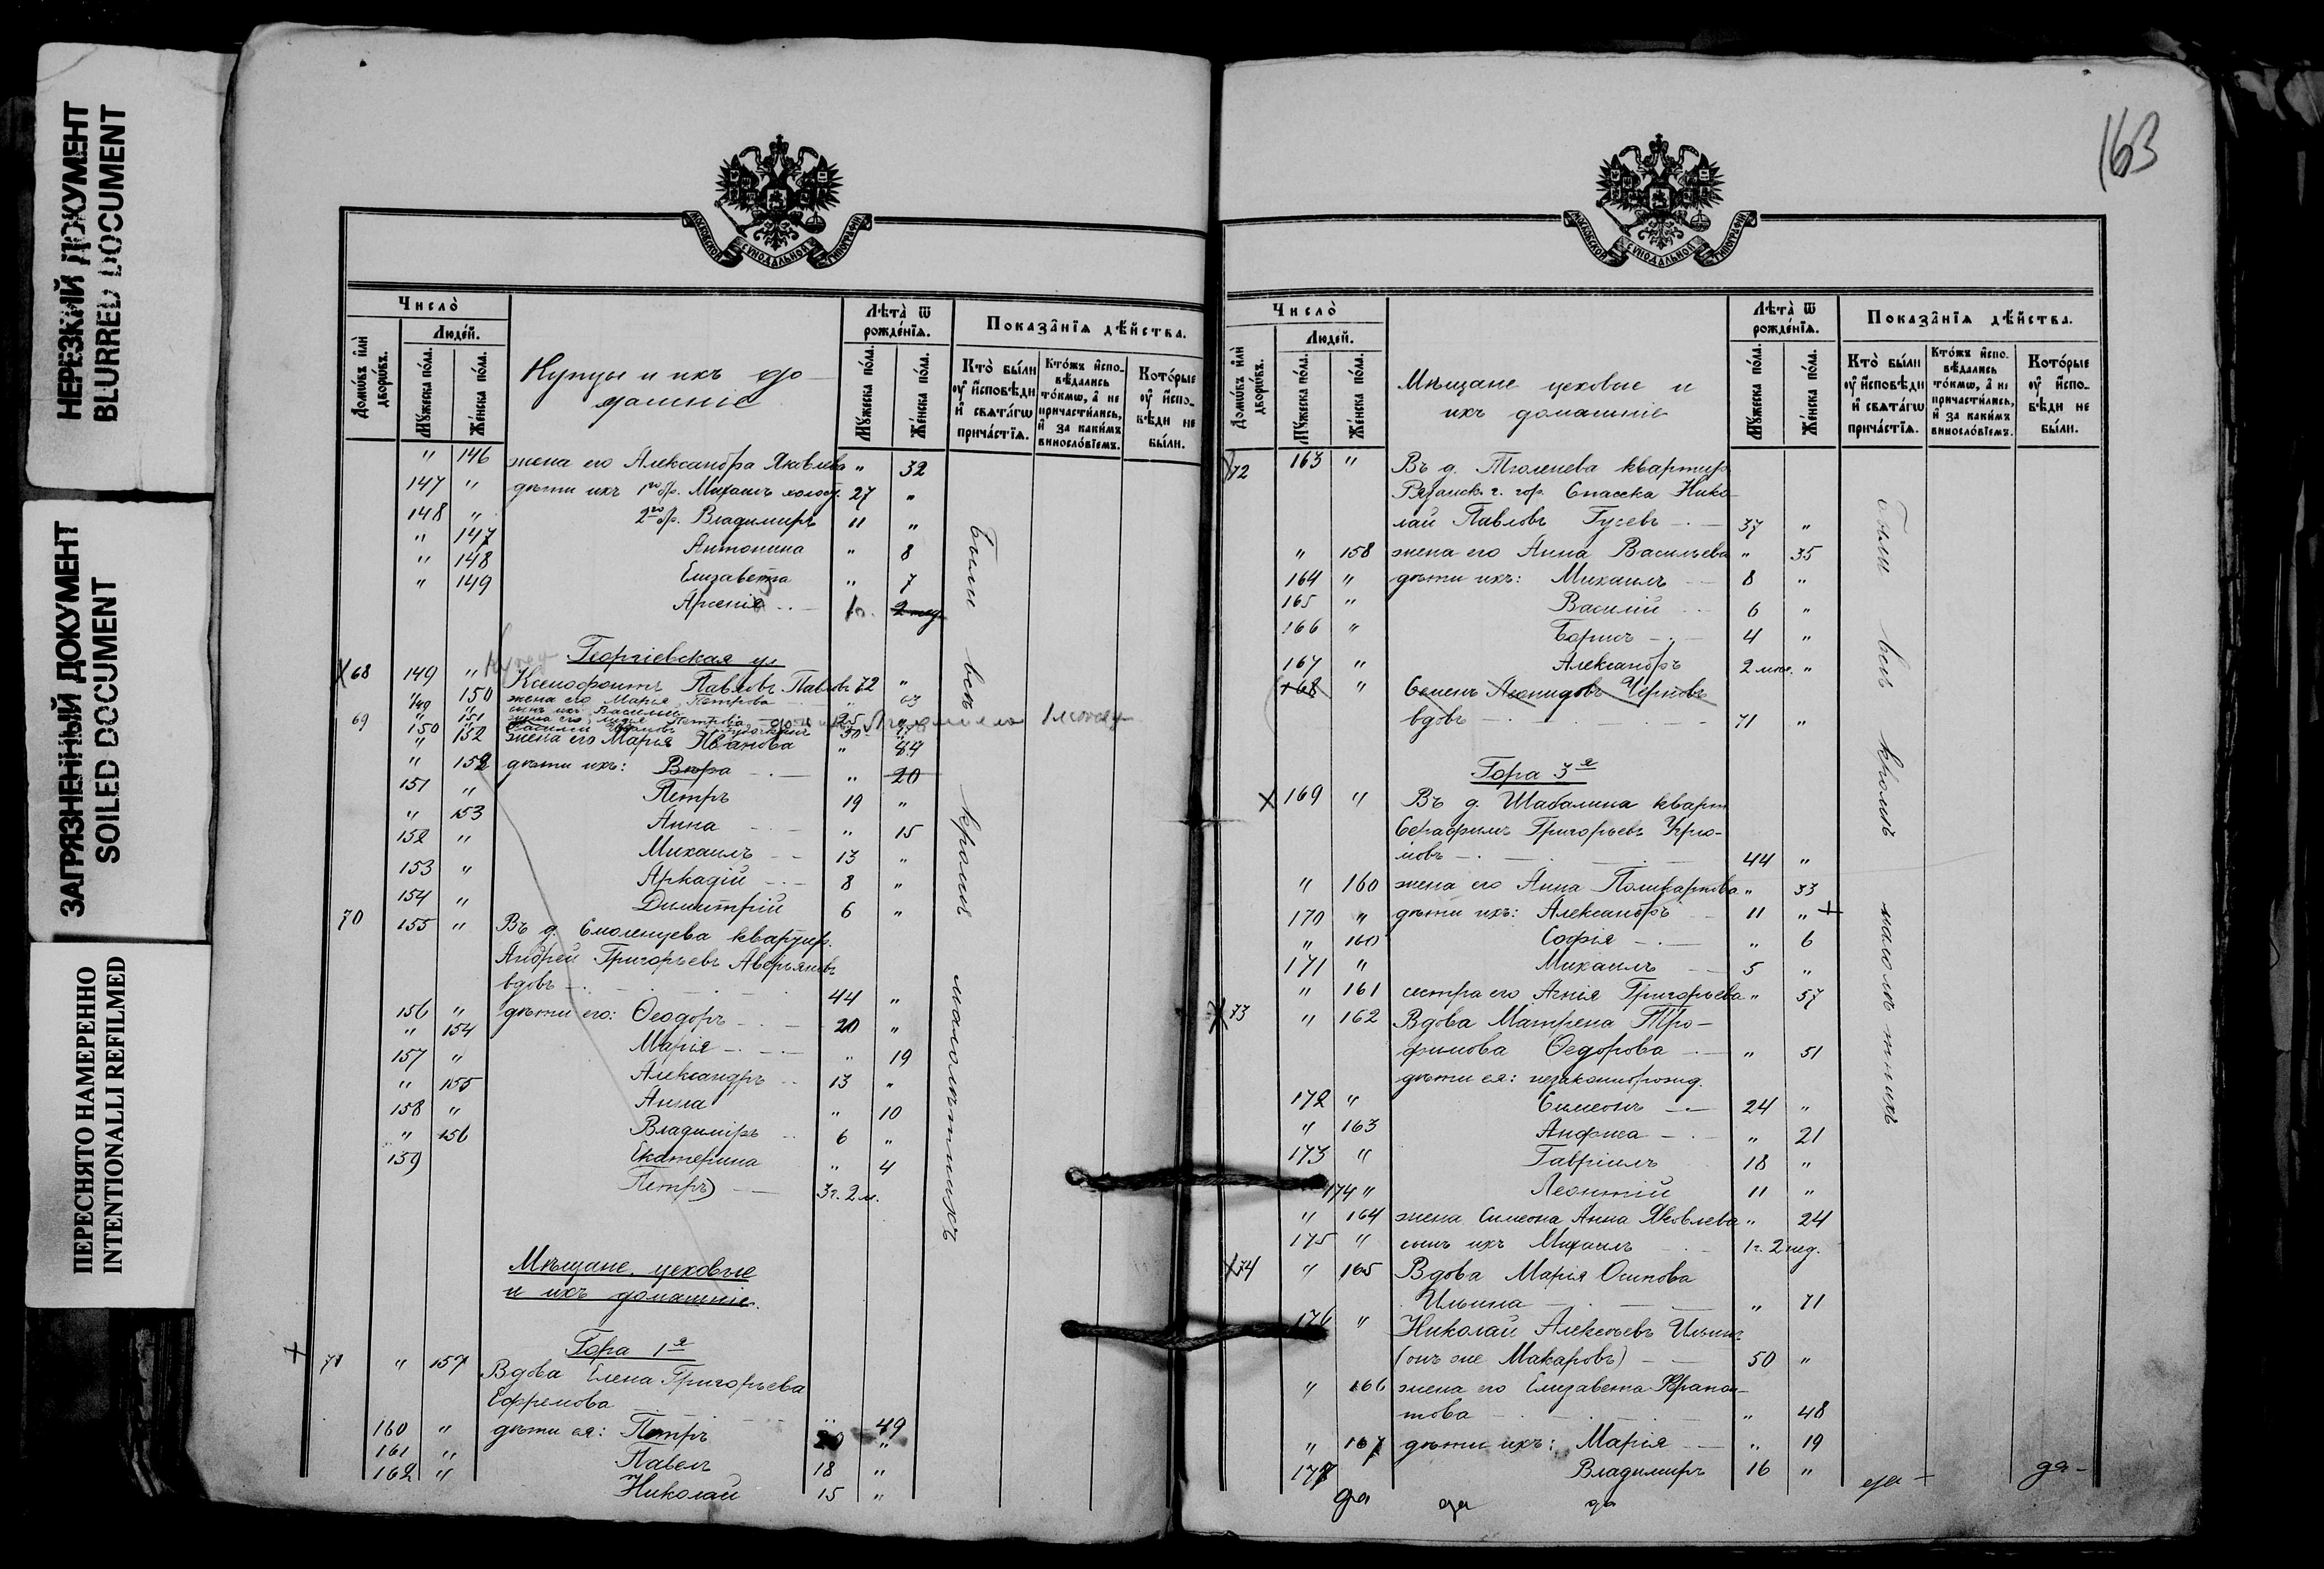 НЕРЕЗКИЙ ДОКУМЕНТ
BLURRED DOCUMENT
ЗАГРЯЗНЕННЫЙ ДОКУМЕНТ
SOILED DOCUMENT
ПЕРЕСНЯТО НАМЕРЕННО
INTENTIONALLI REFILMED
МОСКОВСКОЙ СѴНОДАЛЬНОЙ ТИПОГРАФІИ
Число̀
Люде́й.
Домѡ́въ и҆лѝ дворѡ́въ.
Мꙋ́жеска по́ла.
Же́нска по́ла.
Купцы и ихъ до-
машніе
Лѣта̀ ѿ рожде́нїѧ.
Мꙋ́жеска по́ла.
Же́нска по́ла.
Показа̂нїѧ дѣ́йства.
Кто̀ бы́ли оу҆ и҆сповѣ́ди и҆ свѧта́гѡ прича́стїѧ.
Кто́жъ и҆спо-вѣ́дались то́кмѡ, а҆ не причасти́лись, и҆ за каки́мъ виносло́вїемъ.
Кото́рые оу҆ и҆спо-вѣ́ди не бы́ли.
" 146 жена его Александра Яковлева " 32
147 " дѣти ихъ 1го бр. Михаилъ холост. 27 "
148 " 2го бр. Владимиръ 11 "
" 147 Антонина " 8
" 148 Елизавета " 7
" 149 Арсеній 2 нед
Георгіевская ул
68 149 " Ксенофонтъ Павловъ Павлов 72 "
150 жена его Марія Петрова
сынъ ихъ Василій 25
69 150 Василій Ивановъ 50
" 152 жена его Марія Иванова " 44
" 152 дѣти ихъ: Вѣра " 20
151 " Петръ 19 "
" 153 Анна " 15
152 " Михаилъ 13 "
153 " Аркадій 8 "
154 " Димитрій 6 "
70 155 " Въ д. Смоленцева квартир.
Андрей Григорьевъ Аверьяновъ
вдовъ 44 "
156 " дѣти его: Ѳеодоръ 20 "
" 154 Марія " 19
157 " Александръ 13 "
" 155 Анна " 10
158 " Владимiръ 6 "
" 156 Екатерина " 4
159 Петръ 3г. 2 м.
Были всѣ кромѣ малолѣтнихъ
Мѣщане цеховые
и ихъ домашніе.
Гора 1я
71 " 157 Вдова Елена Григорьева
Ефремова " 49
160 " дѣти ея: Петръ 20 "
161 " Павелъ 18 "
162 " Николай 15 "
163
МОСКОВСКОЙ СѴНОДАЛЬНОЙ ТИПОГРАФІИ
Число̀
Люде́й.
Домѡ́въ и҆лѝ дворѡ́въ.
Мꙋ́жеска по́ла.
Же́нска по́ла.
Мѣщане цеховые и
ихъ домашніе
Лѣта̀ ѿ рожде́нїѧ.
Мꙋ́жеска по́ла.
Же́нска по́ла.
Показа̂нїѧ дѣ́йства.
Кто̀ бы́ли оу҆ и҆сповѣ́ди и҆ свѧта́гѡ прича́стїѧ.
Кто́жъ и҆спо-вѣ́дались то́кмѡ, а҆ не причасти́лись, и҆ за каки́мъ виносло́вїемъ.
Кото́рые оу҆ и҆спо-вѣ́ди не бы́ли.
72 163 " Въ д. Тюленева квартир
Рязанск. г. гор. Спасска Нико-
лай Павловъ Гусевъ 37 "
" 158 жена его Анна Васильева " 35
164 " дѣти ихъ: Михаилъ 8 "
165 " Василій 6 "
166 " Борисъ 4 "
167 " Александръ 2 мѣс. "
168 " Семенъ Леонидовъ Черновъ
вдовъ 71 "
Гора 3я
169 " Въ д. Шабалина кварт
Серафимъ Григорьевъ Угрю-
мовъ 44 "
" 160 жена его Анна Поликарпова " 33
170 " дѣти ихъ: Александръ 11 "
" 160 Софія " 6
171 " Михаилъ 5 "
" 161 сестра его Агнія Григорьева " 57
73 " 162 Вдова Матрена Тро-
фимова Ѳедорова " 51
дѣти ея: незаконнорожд.
172 " Симеонъ 24 "
" 163 Анфиса " 21
173 " Гавріилъ 18 "
174 " Леонтій 11 "
" 164 жена Симеона Анна Яковлева " 24
175 " сынъ ихъ Михаилъ 1г. 2 нед.
74 " 165 Вдова Марія Осипова
Ильина " 71
176 " Николай Алексѣевъ Ильинъ
(онъ же Макаровъ) 50 "
" 166 жена его Елизавета
" 48
" 167 дѣти ихъ: Марія " 19
177 Владимиръ 16 "
Были всѣ кромѣ малолѣтнихъ
да да да да да